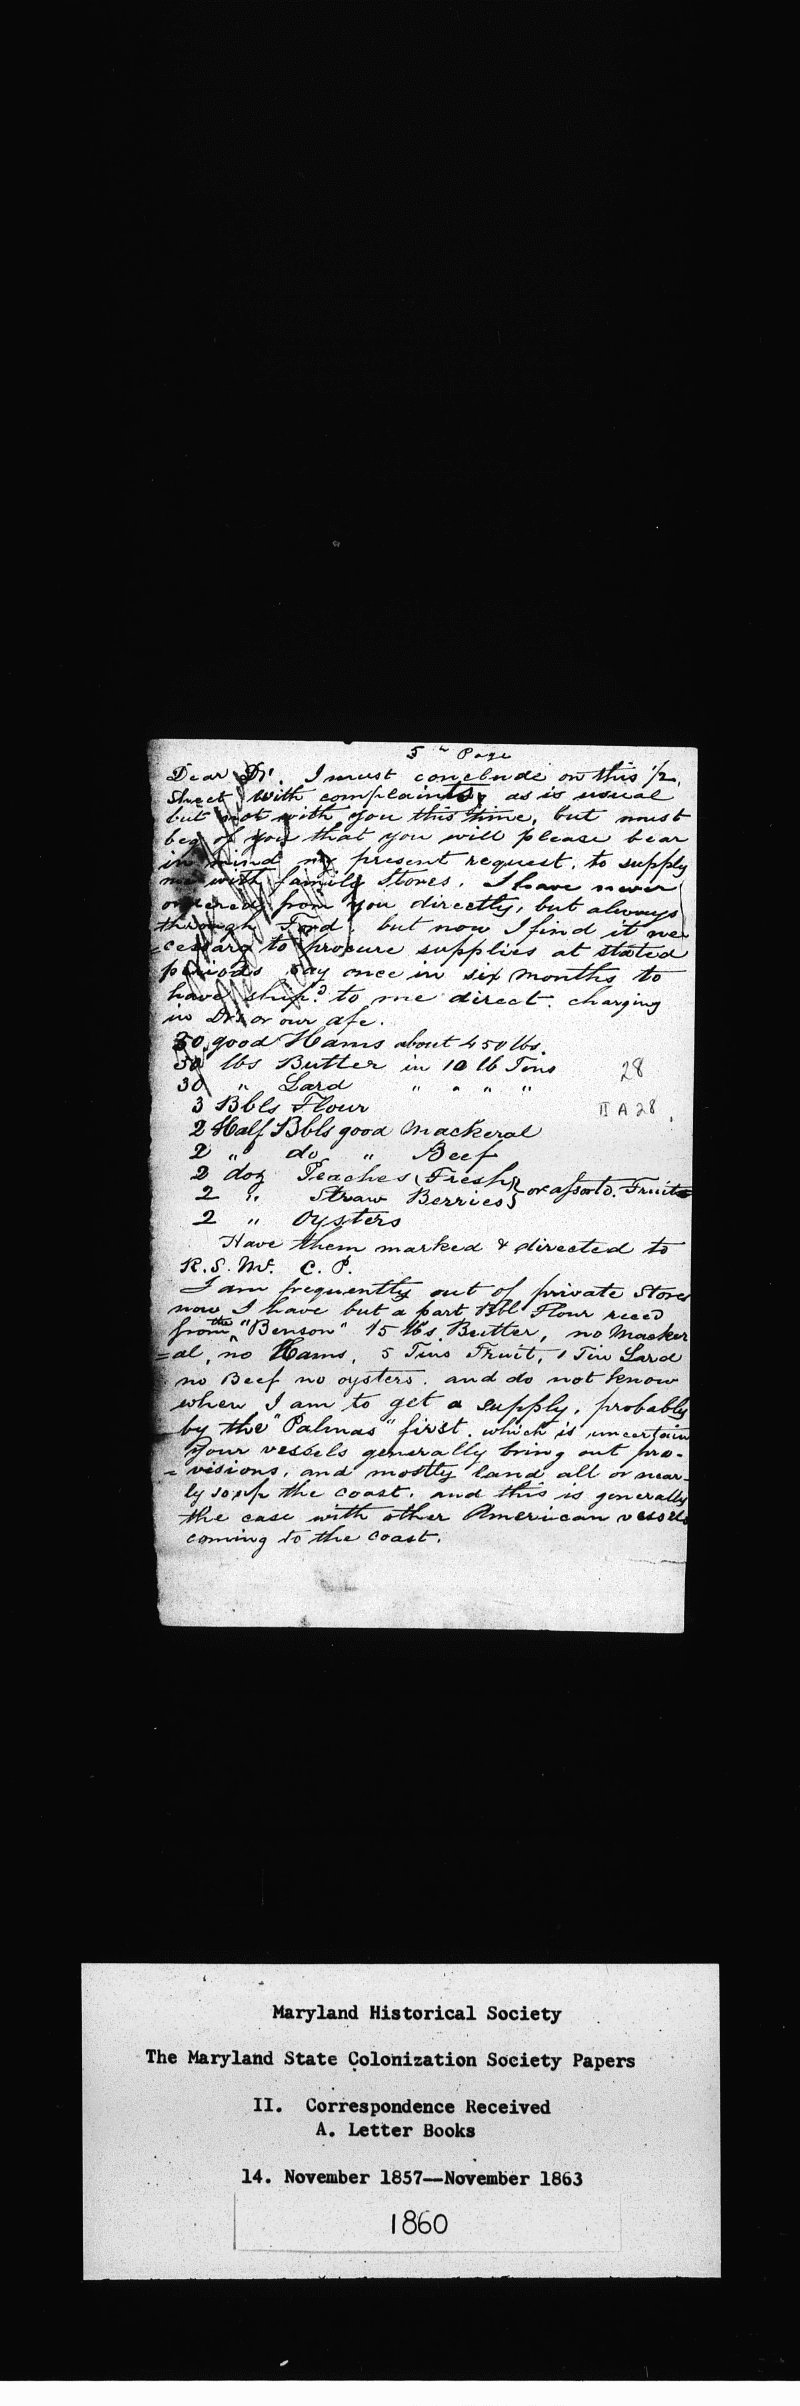 5th Page
Dear Dr. I must conclude on this 1/2
Sheet with complaints, as is usual
but not with you this time, but must
beg of you that you will please bear
in mind my present request, to supply
me with family Stores. I have never
ordered from you directly, but always
through Ford, but now I find it ne
=cessary to procure supplies at stated
periods say once in six months to
have ship.d to me direct. charging
in Drs or our a/c.
50 good Hams about 450 lbs.
50 lbs Butter in 10 lb Tins
30 " Lard " " " "
3 Bbls Flour
2 Half Bbls good Mackeral
2 " do " Beef
2 doz Peaches (Fresh)
2 " Straw Berries } or assotd. Fruits
2 " Oysters
28
II A 28
Have them marked & directed to
R. S. M. C. P.
I am frequently out of private Stores
now I have but a part Bbl Flour recd
from the "Benson" 15 lbs Butter, no Macker
=al, no Hams, 5 Tins Fruit, 1 Tin Lard
no Beef no oysters. and do not know
when I am to get a supply, probably
by the "Palmas" first. which is uncertain
your vessels generally bring out pro-
=visions, and mostly land all or near-
ly so up the coast. and this is generally
the case with other American vessels
coming to the coast.
Maryland Historical Society
The Maryland State Colonization Society Papers
II. Correspondence Received
A. Letter Books
14. November 1857--November 1863
1860